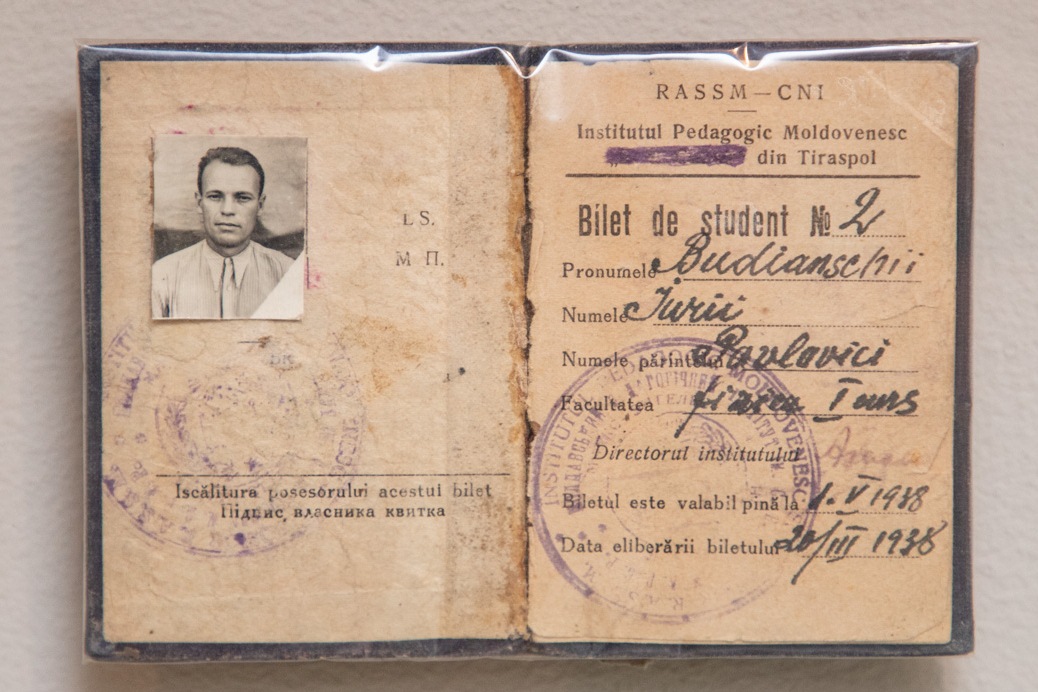 LS.
М П.
Iscălitura posesorului acestui bilet
Підпис власника квитка
RASSM — CNI
Institutul Pedagogic Moldovenesc
din Tiraspol
Bilet de student № 2
Pronumele Budianschii
Numele Iurii
Numele părintelui Pavlovici
Facultatea I curs
Directorul institutului
Biletul este valabil pînă la 1. V 1938
Data eliberării biletului 20/III 1938
INSTITUTUL PEDAGOGIC MOLDOVENESC